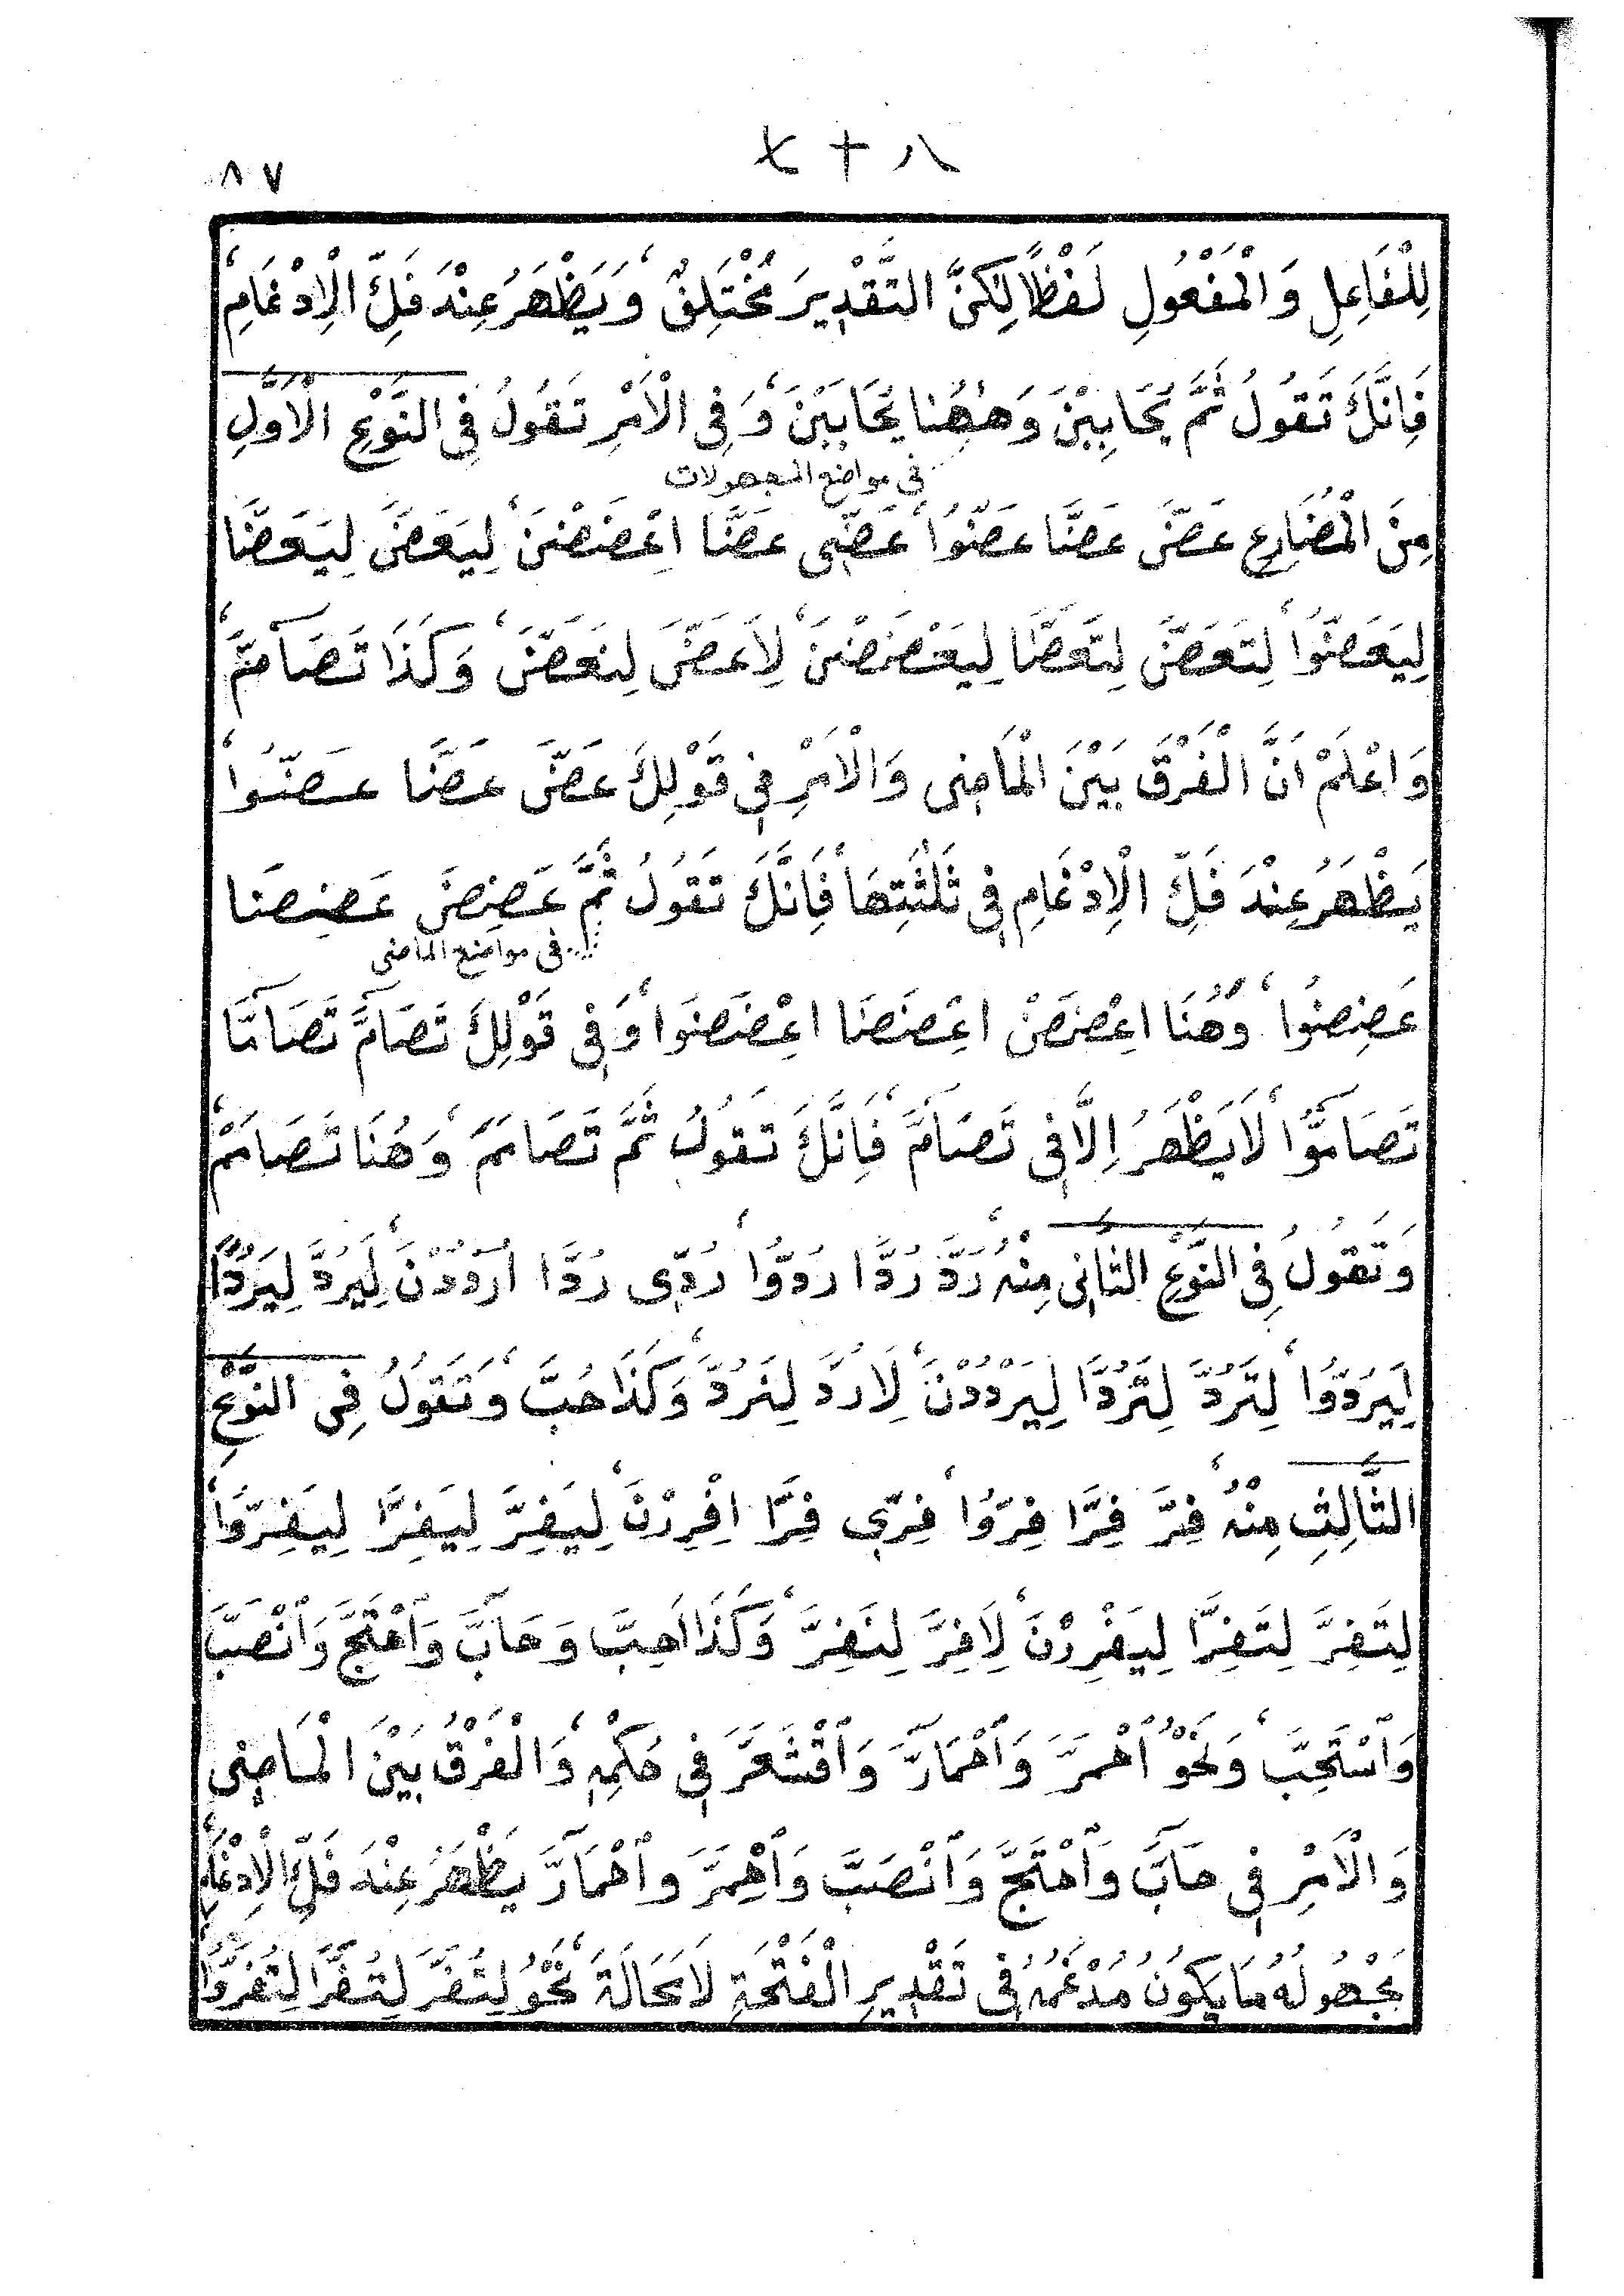 ٨٧
لِلْفَاعِلِ وَالْمَفْعُولِ لَفْظًا لٰكِنَّ التَّقْدِيرَ مُخْتَلِفٌ وَيَظْهَرُ عِنْدَ فَكِّ الْاِدْغَامِ
فَاِنَّكَ تَقُولُ ثَمَّ يُحَابِبْنَ وَهٰهُنَا يُحَابَبْنَ وَفِى الْاَمْرِ تَقُولُ فِى النَّوْعِ الْاَوَّلِ
فى مواضع المجهولات
مِنَ الْمُضَارِعِ عَضَّ عَضَّا عَضُّوا عَضِّى عَضَّا اِعْضَضْنَ لِيَعَضَّ لِيَعَضَّا
لِيَعَضُّوا لِتَعَضَّ لِتَعَضَّا لِيَعْضَضْنَ لِاَعَضَّ لِنَعَضَّ وَكَذَا تَصَآمَّ
وَاعْلَمْ اَنَّ الْفَرْقَ بَيْنَ الْمَاضِى وَالْاَمْرِ فِى قَوْلِكَ عَضَّ عَضَّا عَضُّوا
يَظْهَرُ عِنْدَ فَكِّ الْاِدْغَامِ فِى ثَلٰثَتِهَا فَاِنَّكَ تَقُولُ ثَمَّ عَضِضَ عَضِضَا
فى مواضع الماضى
عَضِضُوا وَهُنَا اِعْضَضْ اِعْضَضَا اِعْضَضَوا وَفِى قَوْلِكَ تَصَآمَّ تَصَآمَّا
تَصَآمُّوا لَا يَظْهَرُ اِلَّا فِى تَصَآمَّ فَاِنَّكَ تَقُولُ ثَمَّ تَصَامَمَ وَهُنَا تَصَامَمْ
وَتَقُولُ فِى النَّوْعِ الثَّانِى مِنْهُ رُدَّ رُدَّا رُدُّوا رُدِّى رُدَّا اُرْدُدْنَ لِيَرُدَّ لِيَرُدَّا
لِيَرُدُّوا لِتَرُدَّ لِتَرُدَّا لِيَرْدُدْنَ لِاَرُدَّ لِنَرُدَّ وَكَذَا حُبَّ وَتَقُولُ فِى النَّوْعِ
الثَّالِثِ مِنْهُ فِرَّ فِرَّا فِرُّوا فِرِّى فِرَّا اِفْرِرْنَ لِيَفِرَّ لِيَفِرَّا لِيَفِرُّوا
لِتَفِرَّ لِتَفِرَّا لِيَفْرِرْنَ لِاَفِرَّ لِنَفِرَّ وَكَذَا اَحِبَّ وَحَآبَّ وَٱحْتَجَّ وَٱنْصَبَّ
وَٱسْتَحِبَّ وَنَحْوُ ٱحْمَرَّ وَٱحْمَآرَّ وَٱقْشَعَرَّ فِى حُكْمِهِ وَالْفَرْقُ بَيْنَ الْمَاضِى
وَالْاَمْرِ فِى حَآبَّ وَٱحْتَجَّ وَٱنْصَبَّ وَٱحْمَرَّ وَٱحْمَآرَّ يَظْهَرُ عِنْدَ فَكِّ الْاِدْغَامِ
مَجْهُولُهُ مَا يَكُونُ مُدْغَمُهُ فِى تَقْدِيرِ الْفَتْحَةِ لَا مَحَالَةَ نَحْوُ لِتُفَرَّ لِتُفَرَّا لِتُفَرُّوا